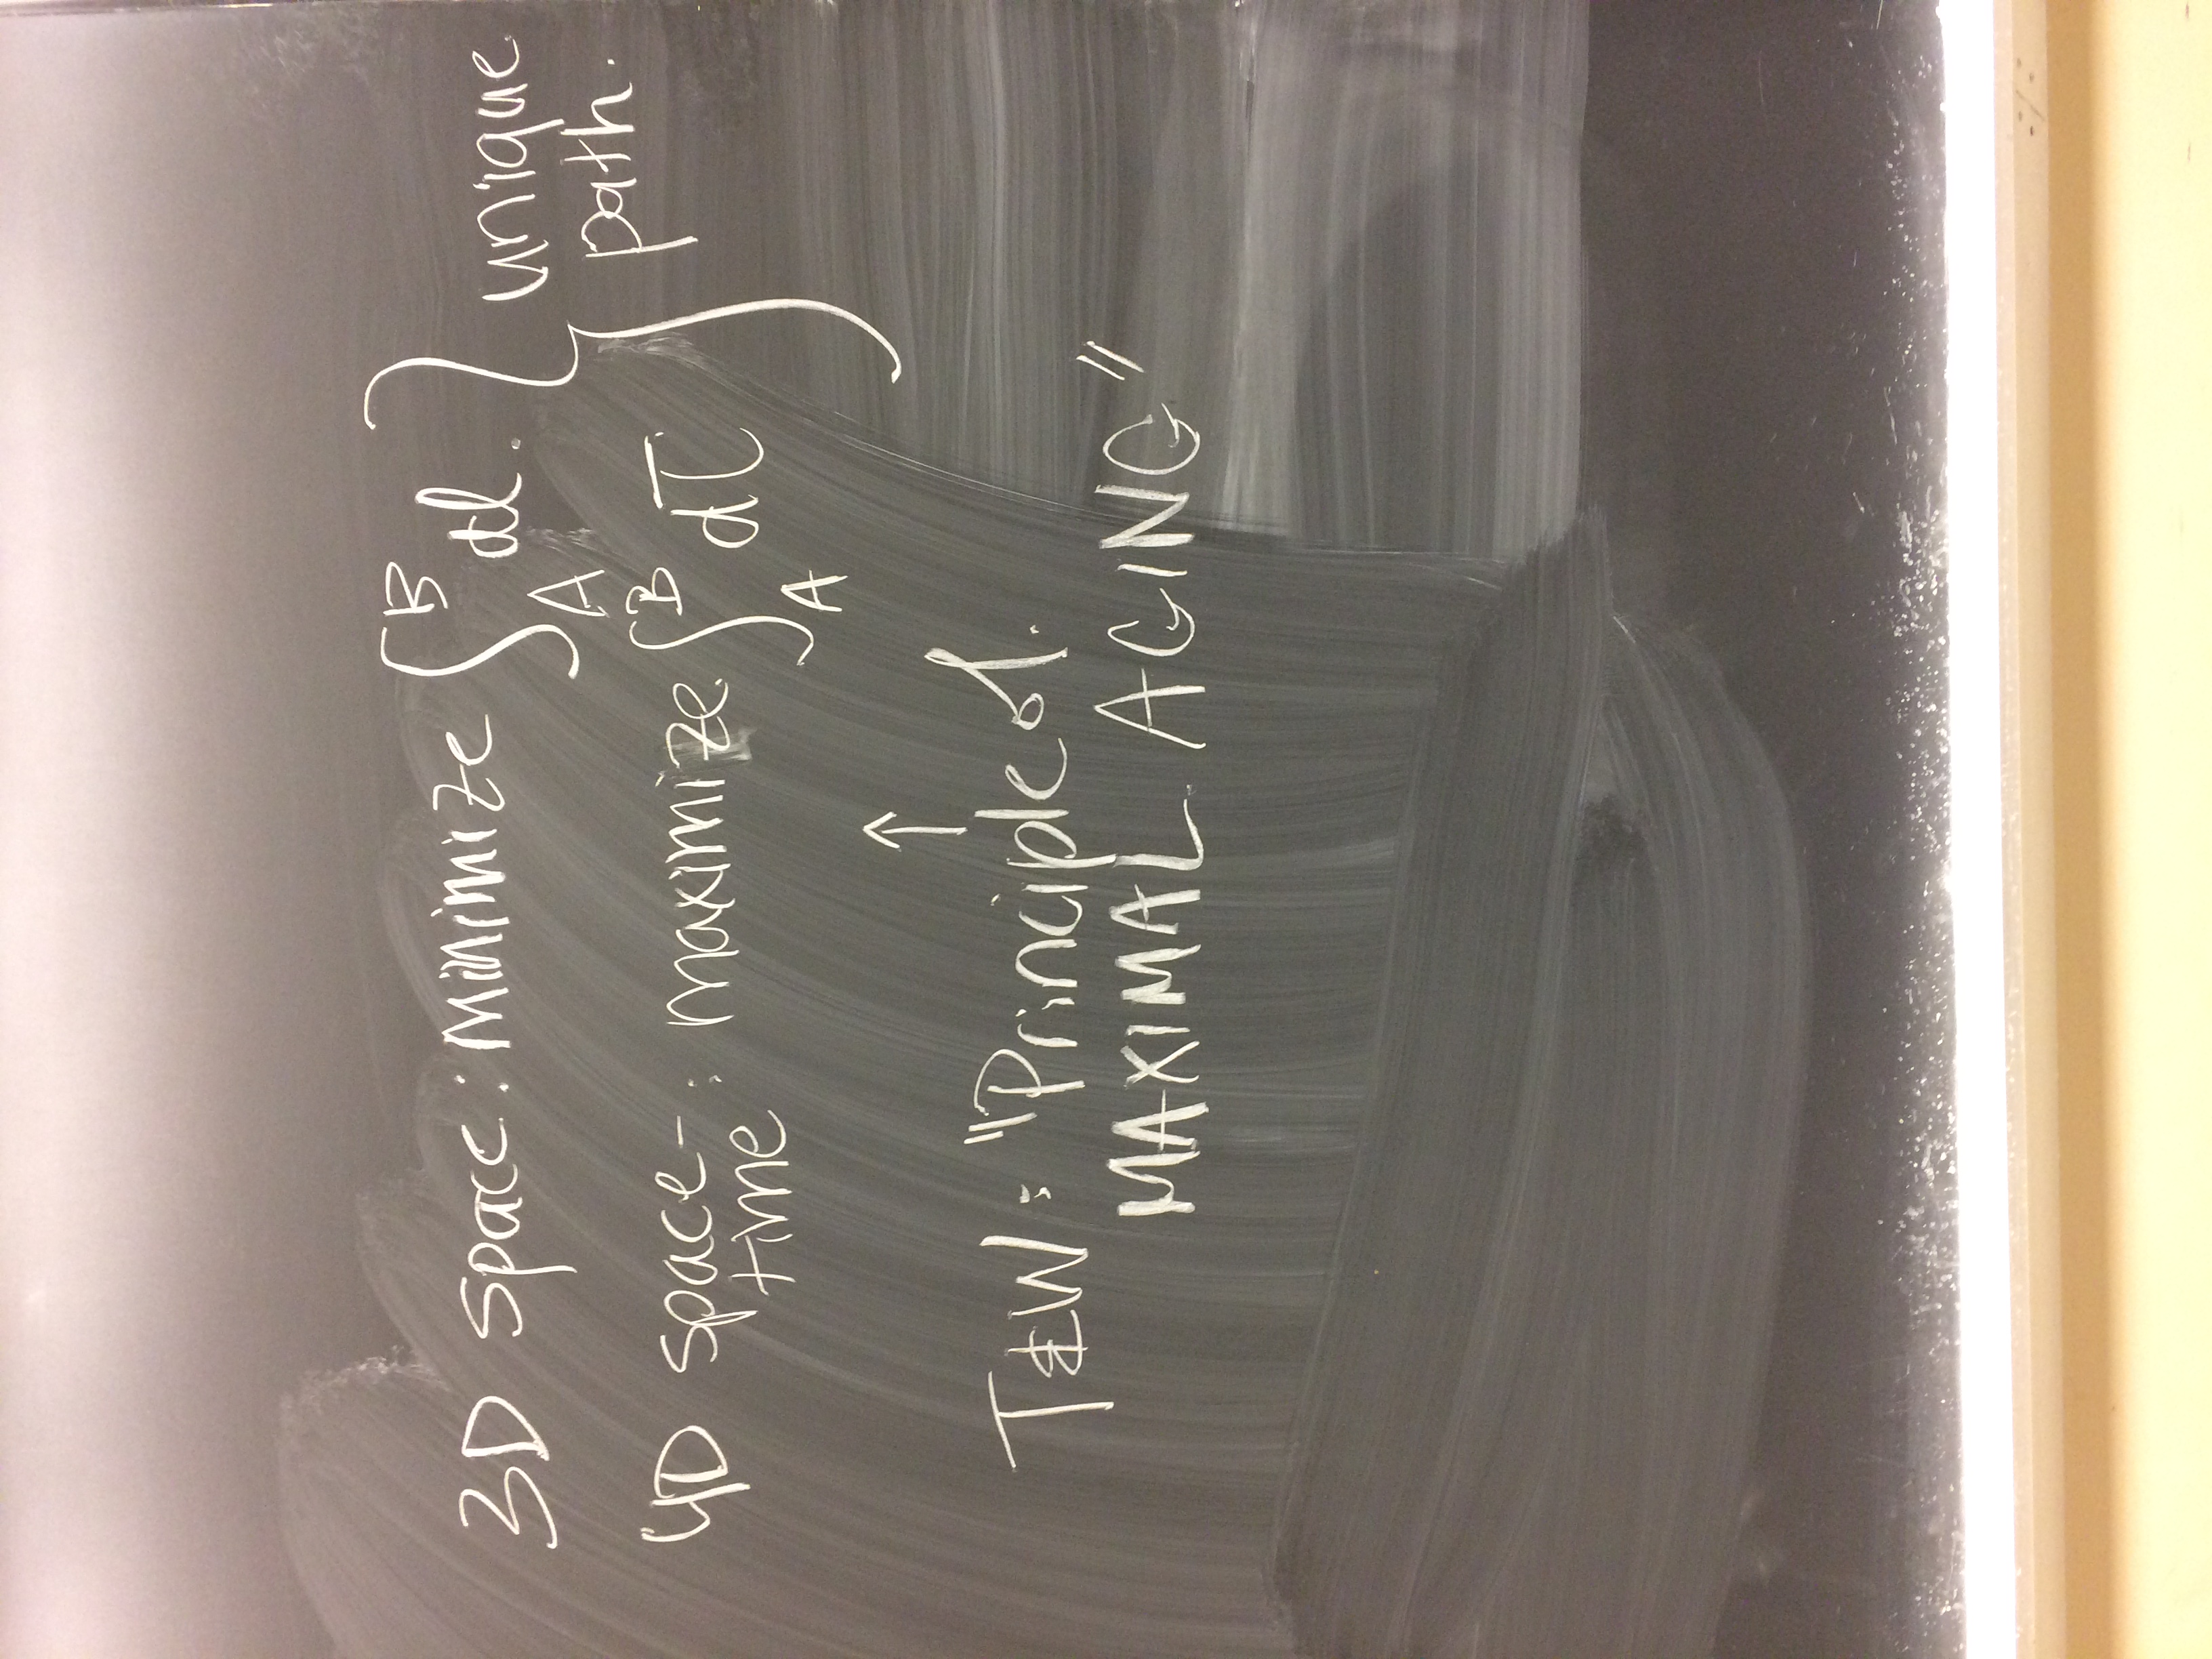 3D Space: Minimize ∫_A^B dl. } unique path.
4D space-time: maximize ∫_A^B dτ
↑
T&W: "Principle of.
MAXIMAL AGING"